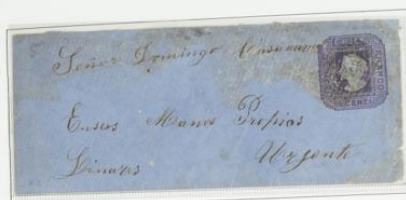 Señor Domingo
Ensus Manos Propias
Linares Urgente